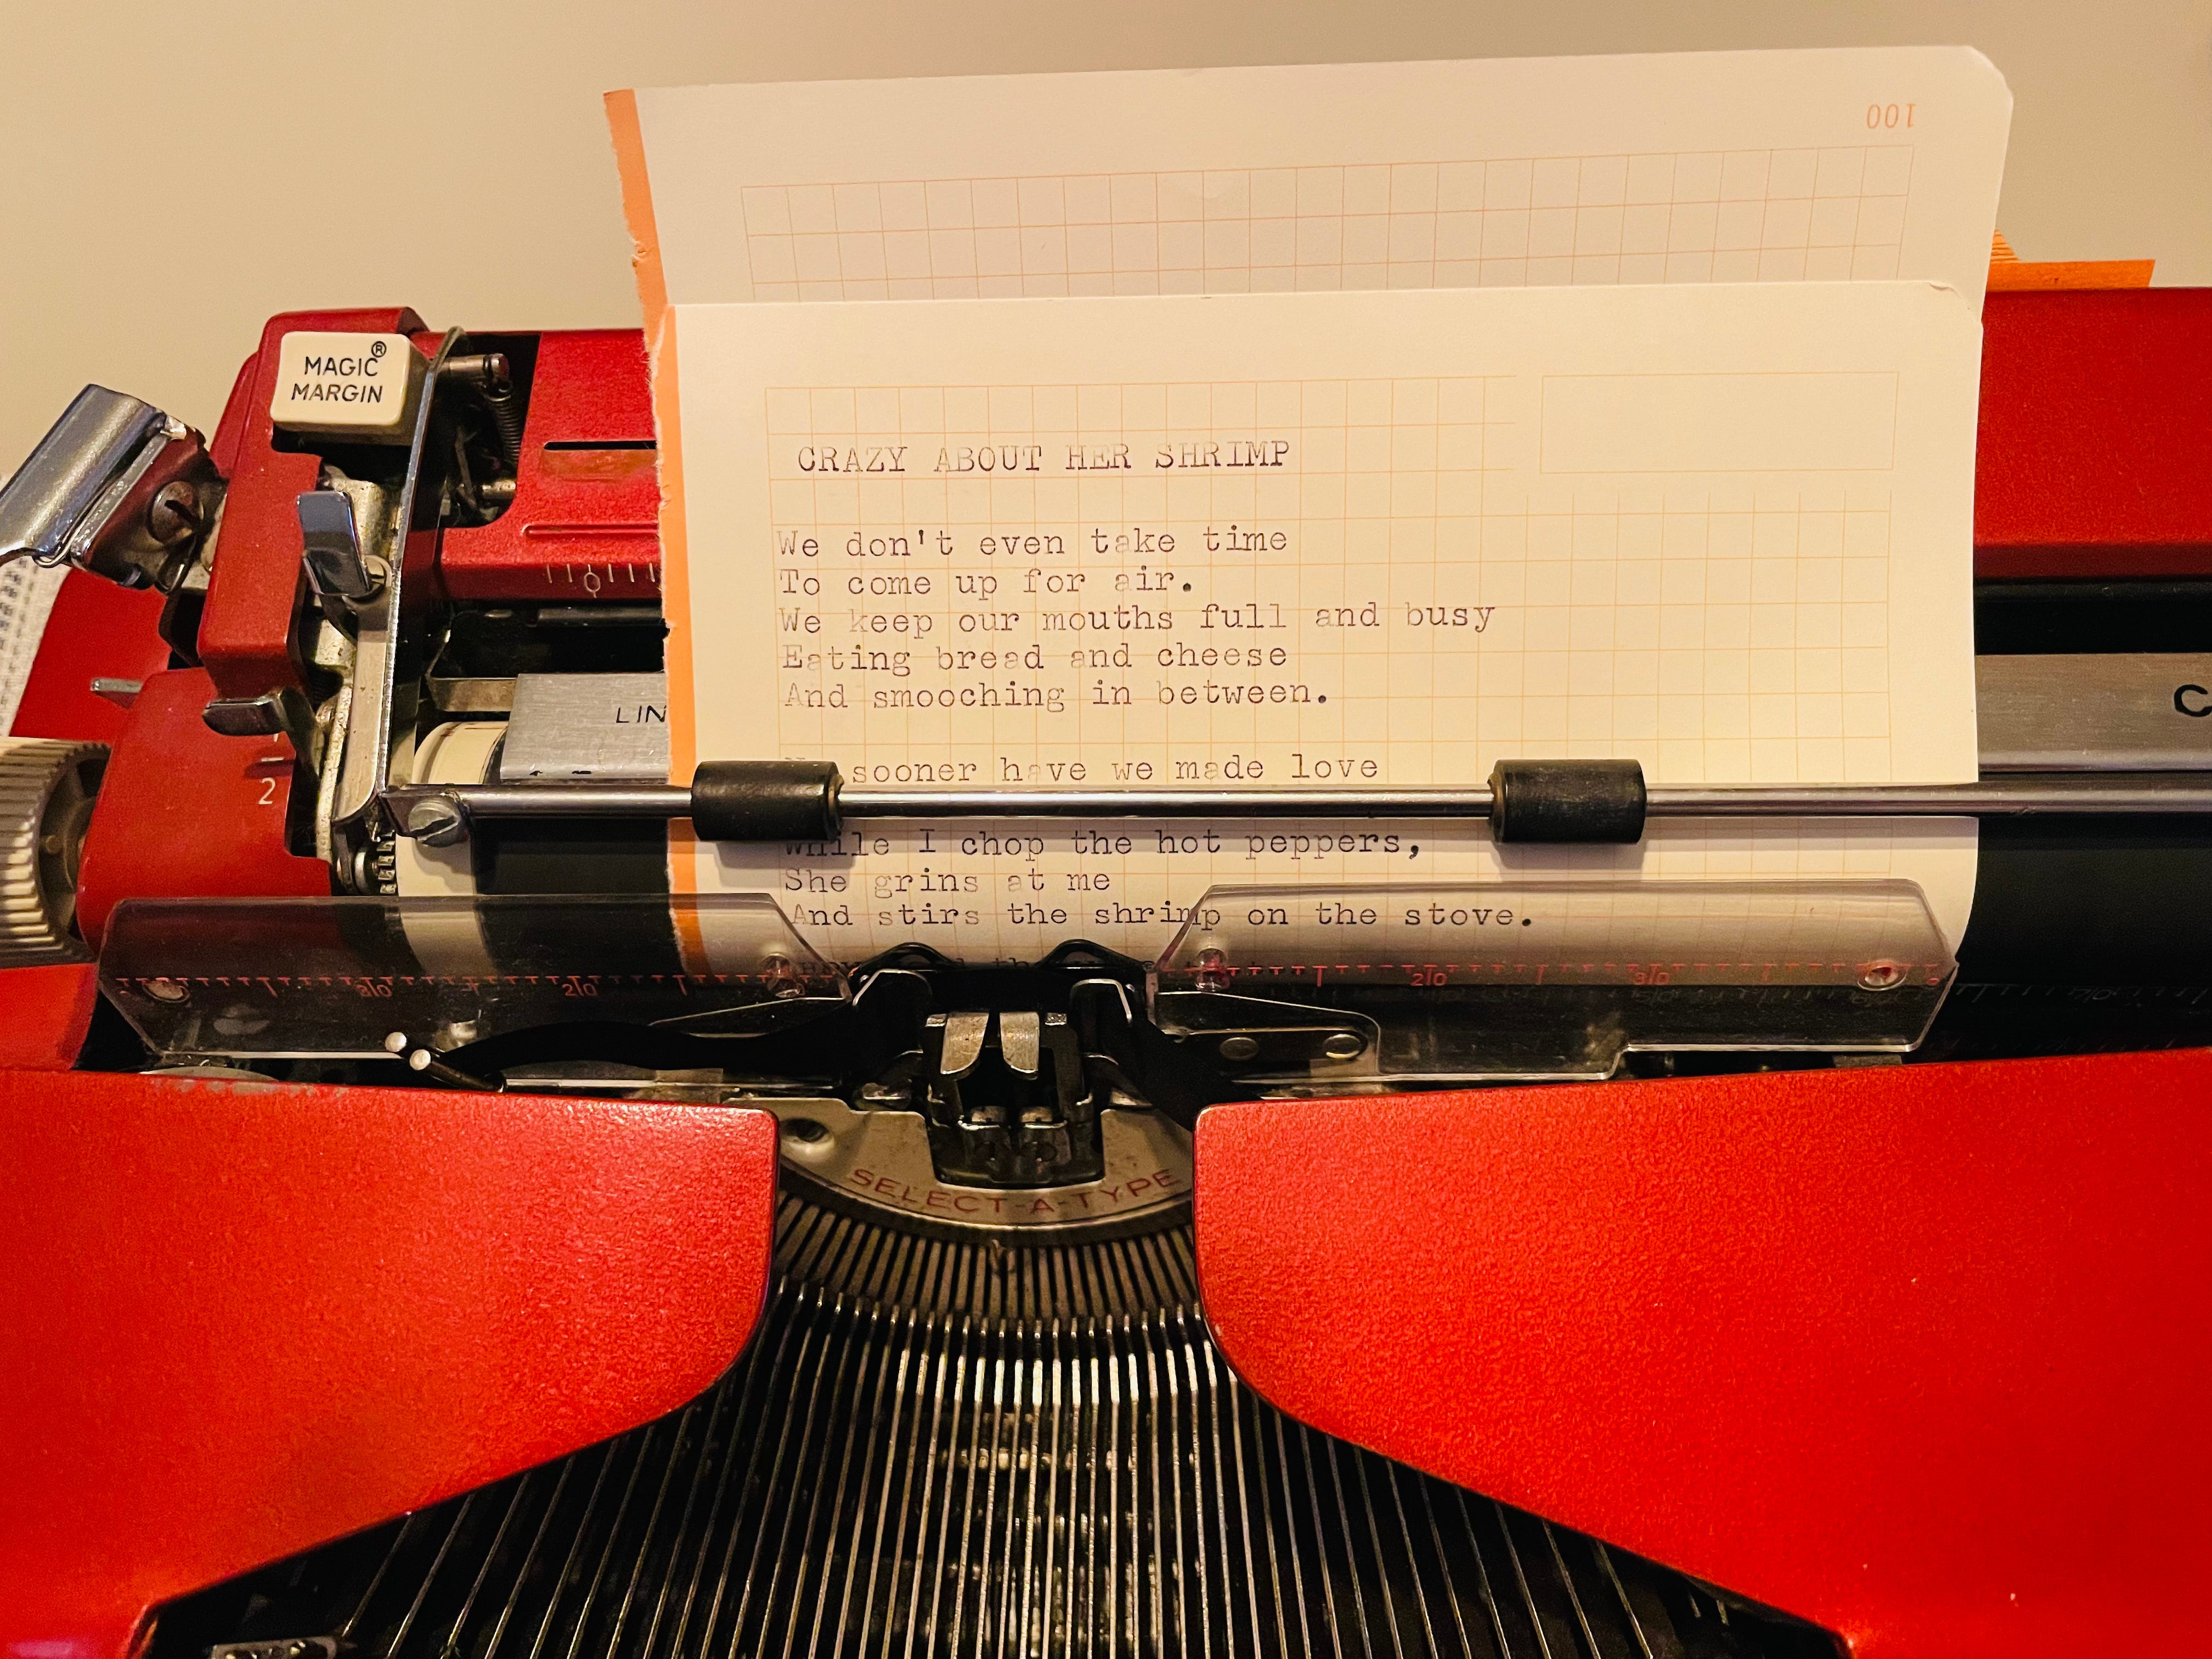 100
MAGIC®
MARGIN
CRAZY ABOUT HER SHRIMP
We don't even take time
To come up for air.
We keep our mouths full and busy
Eating bread and cheese
And smooching in between.
sooner have we made love
While I chop the hot peppers,
She grins at me
And stirs the shrimp on the stove.
0
LIN
C
2
30 20
20 30
SELECT-A-TYPE